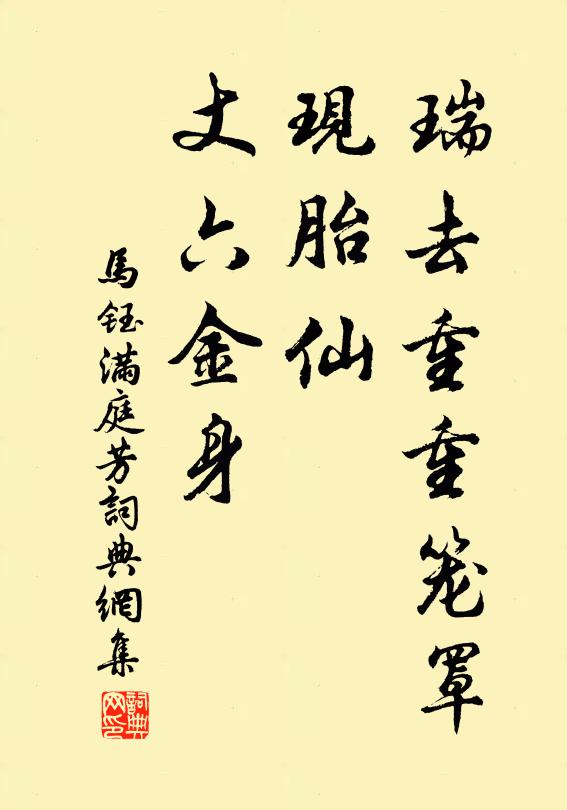 瑞去重重笼罩
現胎仙
丈六金身
馬鈺滿庭芳詞典網集
詞典
网印